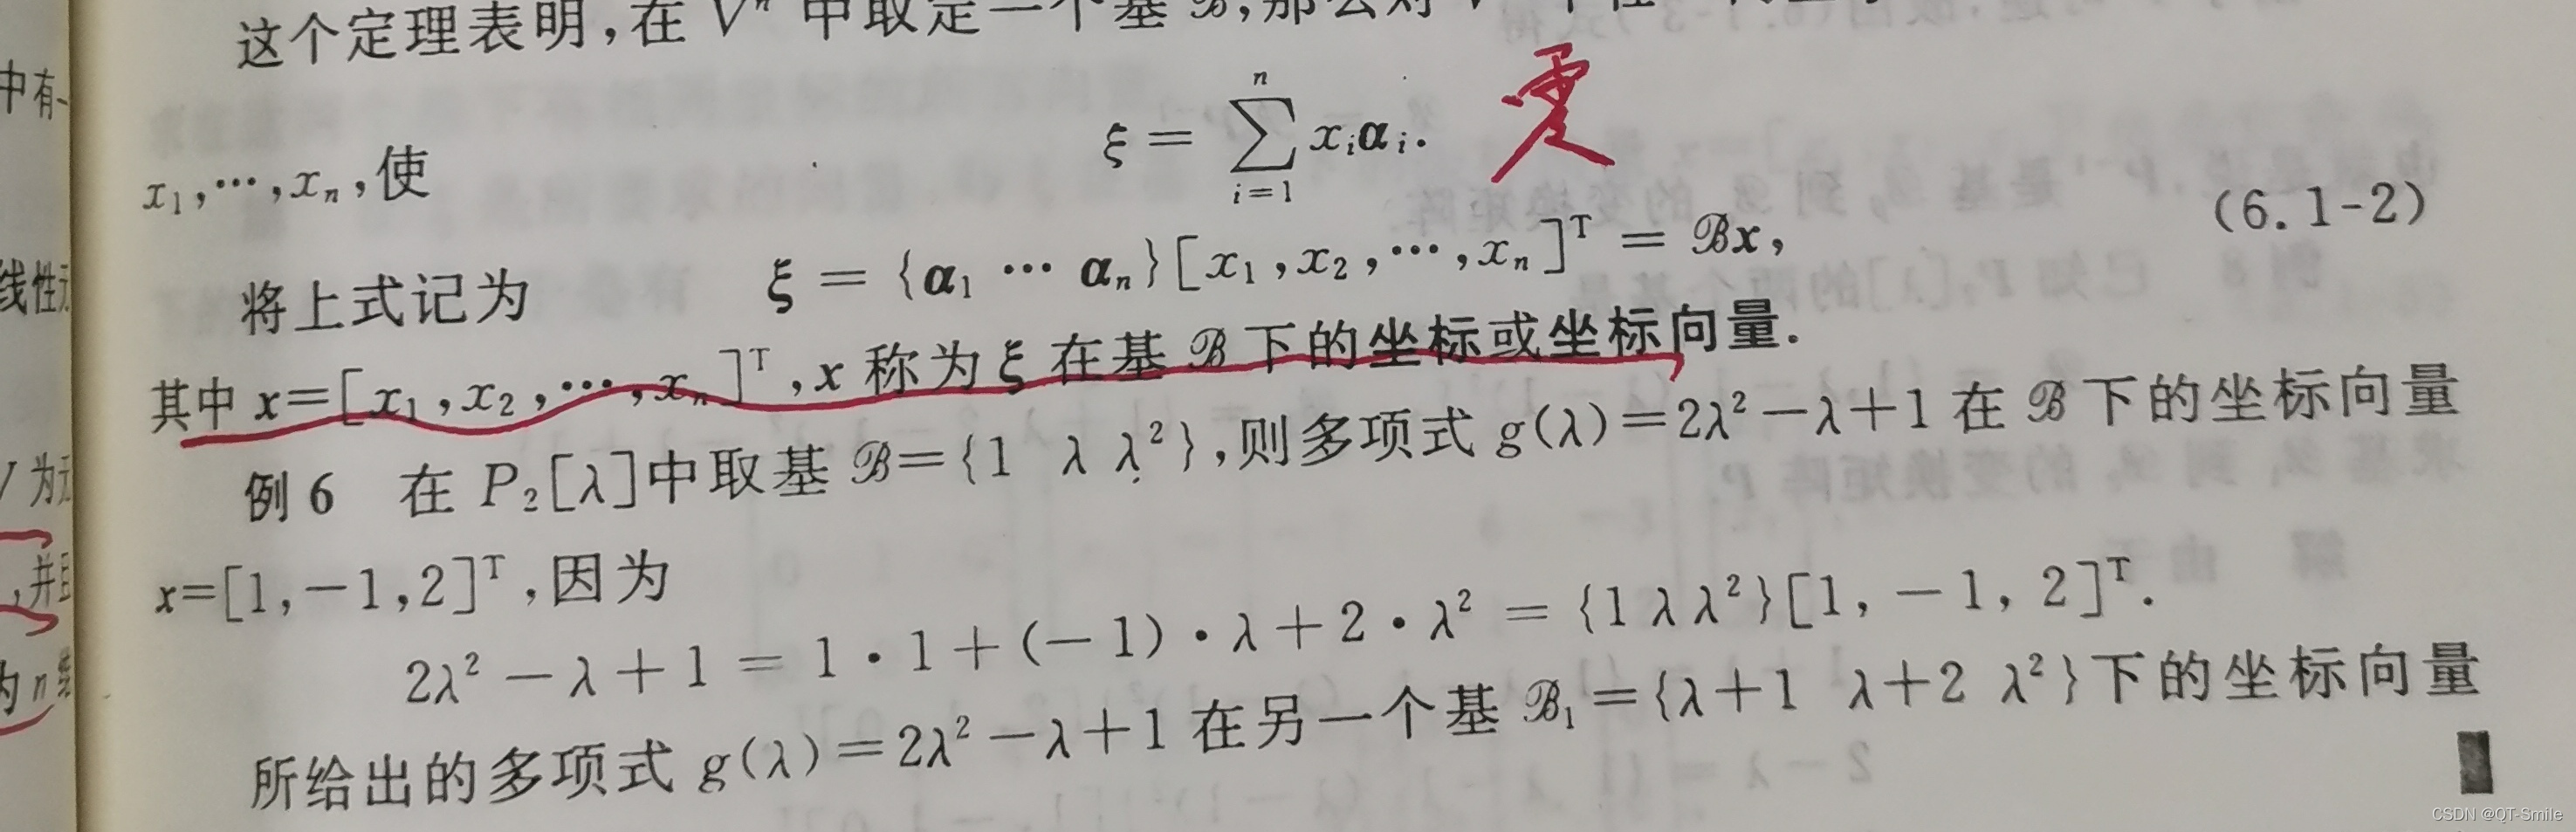 这个定理表明,在 Vⁿ 中取定一个基 ℬ,那么对
ξ = ∑ᵢ₌₁ⁿ xᵢαᵢ.
x₁,⋯,xₙ,使
将上式记为 ξ = {α₁ ⋯ αₙ}[x₁,x₂,⋯,xₙ]ᵀ = ℬx, (6.1-2)
其中 x=[x₁,x₂,⋯,xₙ]ᵀ,x 称为 ξ 在基 ℬ 下的坐标或坐标向量.
例 6 在 P₂[λ]中取基 ℬ={1 λ λ²},则多项式 g(λ)=2λ²-λ+1 在 ℬ 下的坐标向量
x=[1,-1,2]ᵀ,因为
2λ²-λ+1 = 1·1+(-1)·λ+2·λ² = {1 λ λ²}[1,-1,2]ᵀ.
所给出的多项式 g(λ)=2λ²-λ+1 在另一个基 ℬ₁={λ+1 λ+2 λ²}下的坐标向量
中有
线性
为
,并
为 n
CSDN @QT-Smile